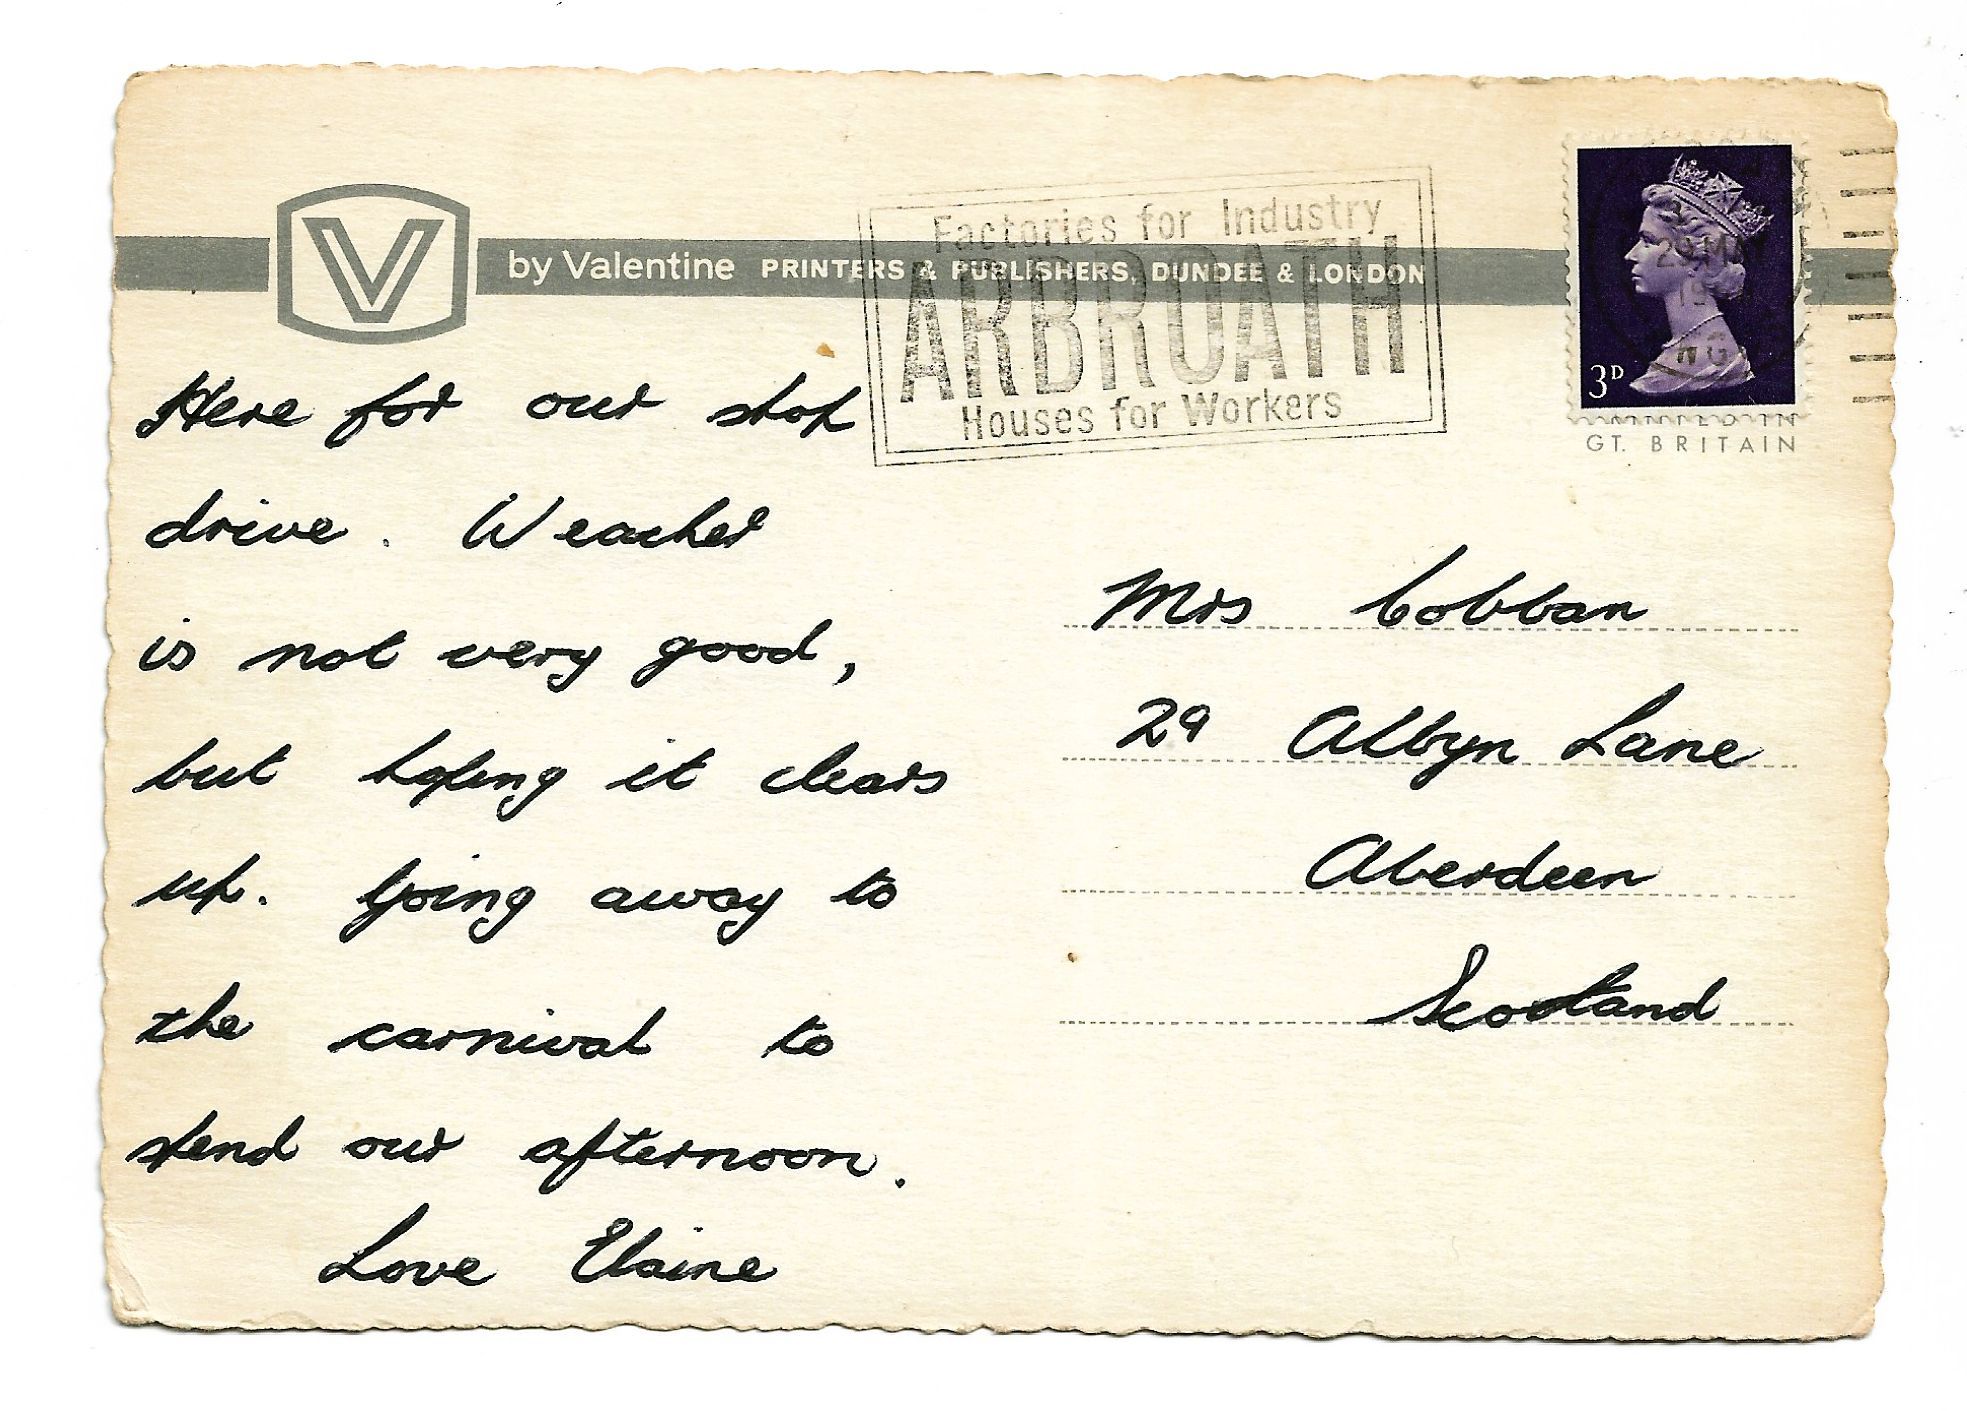 V by Valentine PRINTERS & PUBLISHERS, DUNDEE & LONDON
Factories for Industry
ARBROATH
Houses for Workers
29 MAY
3D
GT. BRITAIN
Here for our stop
drive. Weather
is not very good,
but hoping it clears
up. Going away to
the carnival to
spend our afternoon.
Love Elaine
Mrs Cobban
29 Albyn Lane
Aberdeen
Scotland